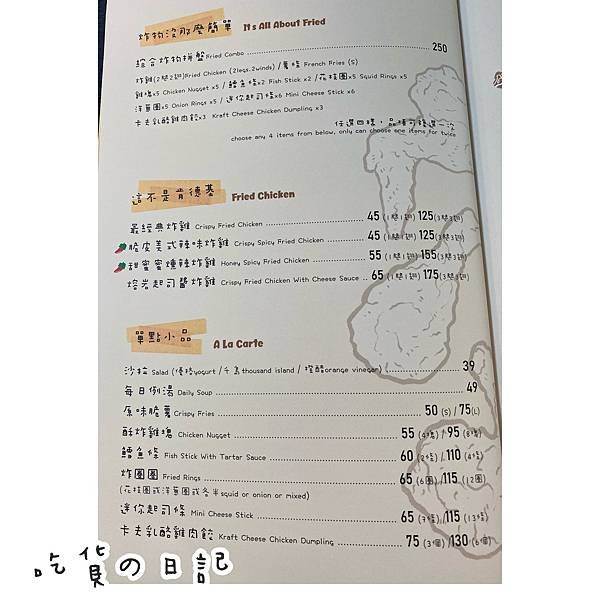 炸物沒那麼簡單 It's All About Fried
綜合炸物拼盤Fried Combo 250
炸雞(2腿2翅)Fried Chicken (2legs.2winds) / 薯條 French Fries (S)
雞塊x5 Chicken Nugget x5 / 鱈魚條x2 Fish Stick x2 / 花枝圈x5 Squid Rings x5
洋蔥圈x5 Onion Rings x5 / 迷你起司條x6 Mini Cheese Stick x6
卡夫乳酪雞肉餃x3 Kraft Cheese Chicken Dumpling x3
任選四樣，品項可複選一次
choose any 4 items from below, only can choose one items for twice
這不是肯德基 Fried Chicken
最經典炸雞 Crispy Fried Chicken 45 (1腿1翅) 125(3腿3翅)
脆皮美式辣味炸雞 Crispy Spicy Fried Chicken 45 (1腿1翅) 125(3腿3翅)
甜蜜蜜燻辣炸雞 Honey Spicy Fried Chicken 55 (1腿1翅) 155(3腿3翅)
熔岩起司醬炸雞 Crispy Fried Chicken With Cheese Sauce 65 (1腿1翅) 175(3腿3翅)
單點小品 A La Carte
沙拉 Salad (優格yogurt / 千島thousand island / 橙醋orange vinegar) 39
每日例湯 Daily Soup 49
原味脆薯 Crispy Fries 50 (S) / 75(L)
酥炸雞塊 Chicken Nugget 55 (4塊) / 95 (8塊)
鱈魚條 Fish Stick With Tartar Sauce 60 (2條) / 110 (4條)
炸圈圈 Fried Rings 65 (6圈) /115 (12圈)
(花枝圈或洋蔥圈或各半squid or onion or mixed)
迷你起司條 Mini Cheese Stick 65 (7條) /115 (13條)
卡夫乳酪雞肉餃 Kraft Cheese Chicken Dumpling 75 (3個) /130 (6個)
吃貨の日記